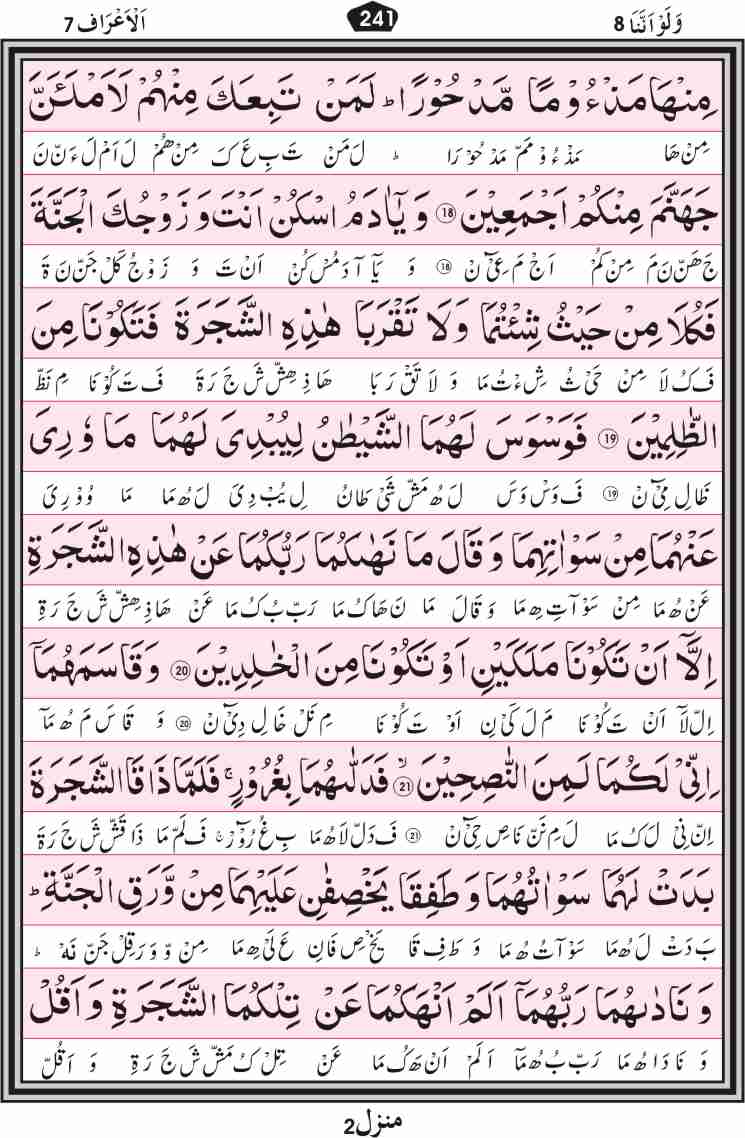 وَلَوْ اَنَّنَا 8 241 اَلْاَعْرَاف 7
مِنْهَا مَذْءُوْمًا مَّدْحُوْرًا ؕ لَمَنْ تَبِعَكَ مِنْهُمْ لَاَمْلَئَنَّ
مِنْ هَا مَذْ ءُ وْ مَمْ مَدْ حُوْ رَا ؕ لَ مَنْ تَ بِ عَ كَ مِنْ هُمْ لَ اَمْ لَ ءَ نْ نَ
جَهَنَّمَ مِنْكُمْ اَجْمَعِيْنَ ⑱ وَ يٰۤاٰدَمُ اسْكُنْ اَنْتَ وَ زَوْجُكَ الْجَنَّةَ
جَ هَنْ نَ مَ مِنْ كُمْ اَجْ مَ عِىْٓ نْ ⑱ وَ يَآ آ دَ مُسْ كُنْ اَنْ تَ وَ زَوْ جُ كَلْ جَنْ نَ ةَ
فَكُلَا مِنْ حَيْثُ شِئْتُمَا وَلَا تَقْرَبَا هٰذِهِ الشَّجَرَةَ فَتَكُوْنَا مِنَ
فَ كُ لَا مِنْ حَىْ ثُ شِءْ تُ مَا وَ لَا تَقْ رَ بَا هَا ذِ هِشّْ شَ جَ رَ ةَ فَ تَ كُوْ نَا مِ نَظّْ
الظّٰلِمِيْنَ ⑲ فَوَسْوَسَ لَهُمَا الشَّيْطٰنُ لِيُبْدِىَ لَهُمَا مَا وٗرِىَ
ظَا لِ مِىْٓ نْ ⑲ فَ وَسْ وَ سَ لَ هُ مَشّْ شَىْ طَا نُ لِ يُبْ دِ ىَ لَ هُ مَا مَا وُوْ رِ ىَ
عَنْهُمَا مِنْ سَوْاٰتِهِمَا وَ قَالَ مَا نَهٰىكُمَا رَبُّكُمَا عَنْ هٰذِهِ الشَّجَرَةِ
عَنْ هُ مَا مِنْ سَوْ آ تِ هِ مَا وَ قَا لَ مَا نَ هَا كُ مَا رَبّْ بُ كُ مَا عَنْ هَا ذِ هِشّْ شَ جَ رَ ةِ
اِلَّاۤ اَنْ تَكُوْنَا مَلَكَيْنِ اَوْ تَكُوْنَا مِنَ الْخٰلِدِيْنَ ⑳ وَ قَاسَمَهُمَاۤ
اِلّ لَآ اَنْ تَ كُوْ نَا مَ لَ كَىْ نِ اَوْ تَ كُوْ نَا مِ نَلْ خَا لِ دِىْٓ نْ ⑳ وَ قَا سَ مَ هُ مَآ
اِنِّىْ لَكُمَا لَمِنَ النّٰصِحِيْنَ ۙ㉑ فَدَلّٰىهُمَا بِغُرُوْرٍ ۚ فَلَمَّا ذَاقَا الشَّجَرَةَ
اِنّْ نِىْ لَ كُ مَا لَ مِ نَنّْ نَا صِ حِىْٓ نْ ㉑ فَ دَلّْ لَا هُ مَا بِ غُ رُوْٓ رْ ۚ فَ لَمّْ مَا ذَا قَشّْ شَ جَ رَ ةَ
بَدَتْ لَهُمَا سَوْاٰتُهُمَا وَ طَفِقَا يَخْصِفٰنِ عَلَيْهِمَا مِنْ وَّرَقِ الْجَنَّةِ ؕ
بَ دَتْ لَ هُ مَا سَوْ آ تُ هُ مَا وَ طَ فِ قَا يَخْ صِ فَا نِ عَ لَىْ هِ مَا مِنْ وّ وَ رَ قِلْ جَنّْ نَهْ ؕ
وَ نَادٰىهُمَا رَبُّهُمَاۤ اَلَمْ اَنْهَكُمَا عَنْ تِلْكُمَا الشَّجَرَةِ وَ اَقُلْ
وَ نَا دَا هُ مَا رَبّْ بُ هُ مَآ اَ لَمْ اَنْ هَ كُ مَا عَنْ تِلْ كُ مَشّْ شَ جَ رَ ةِ وَ اَ قُلّ
منزل 2